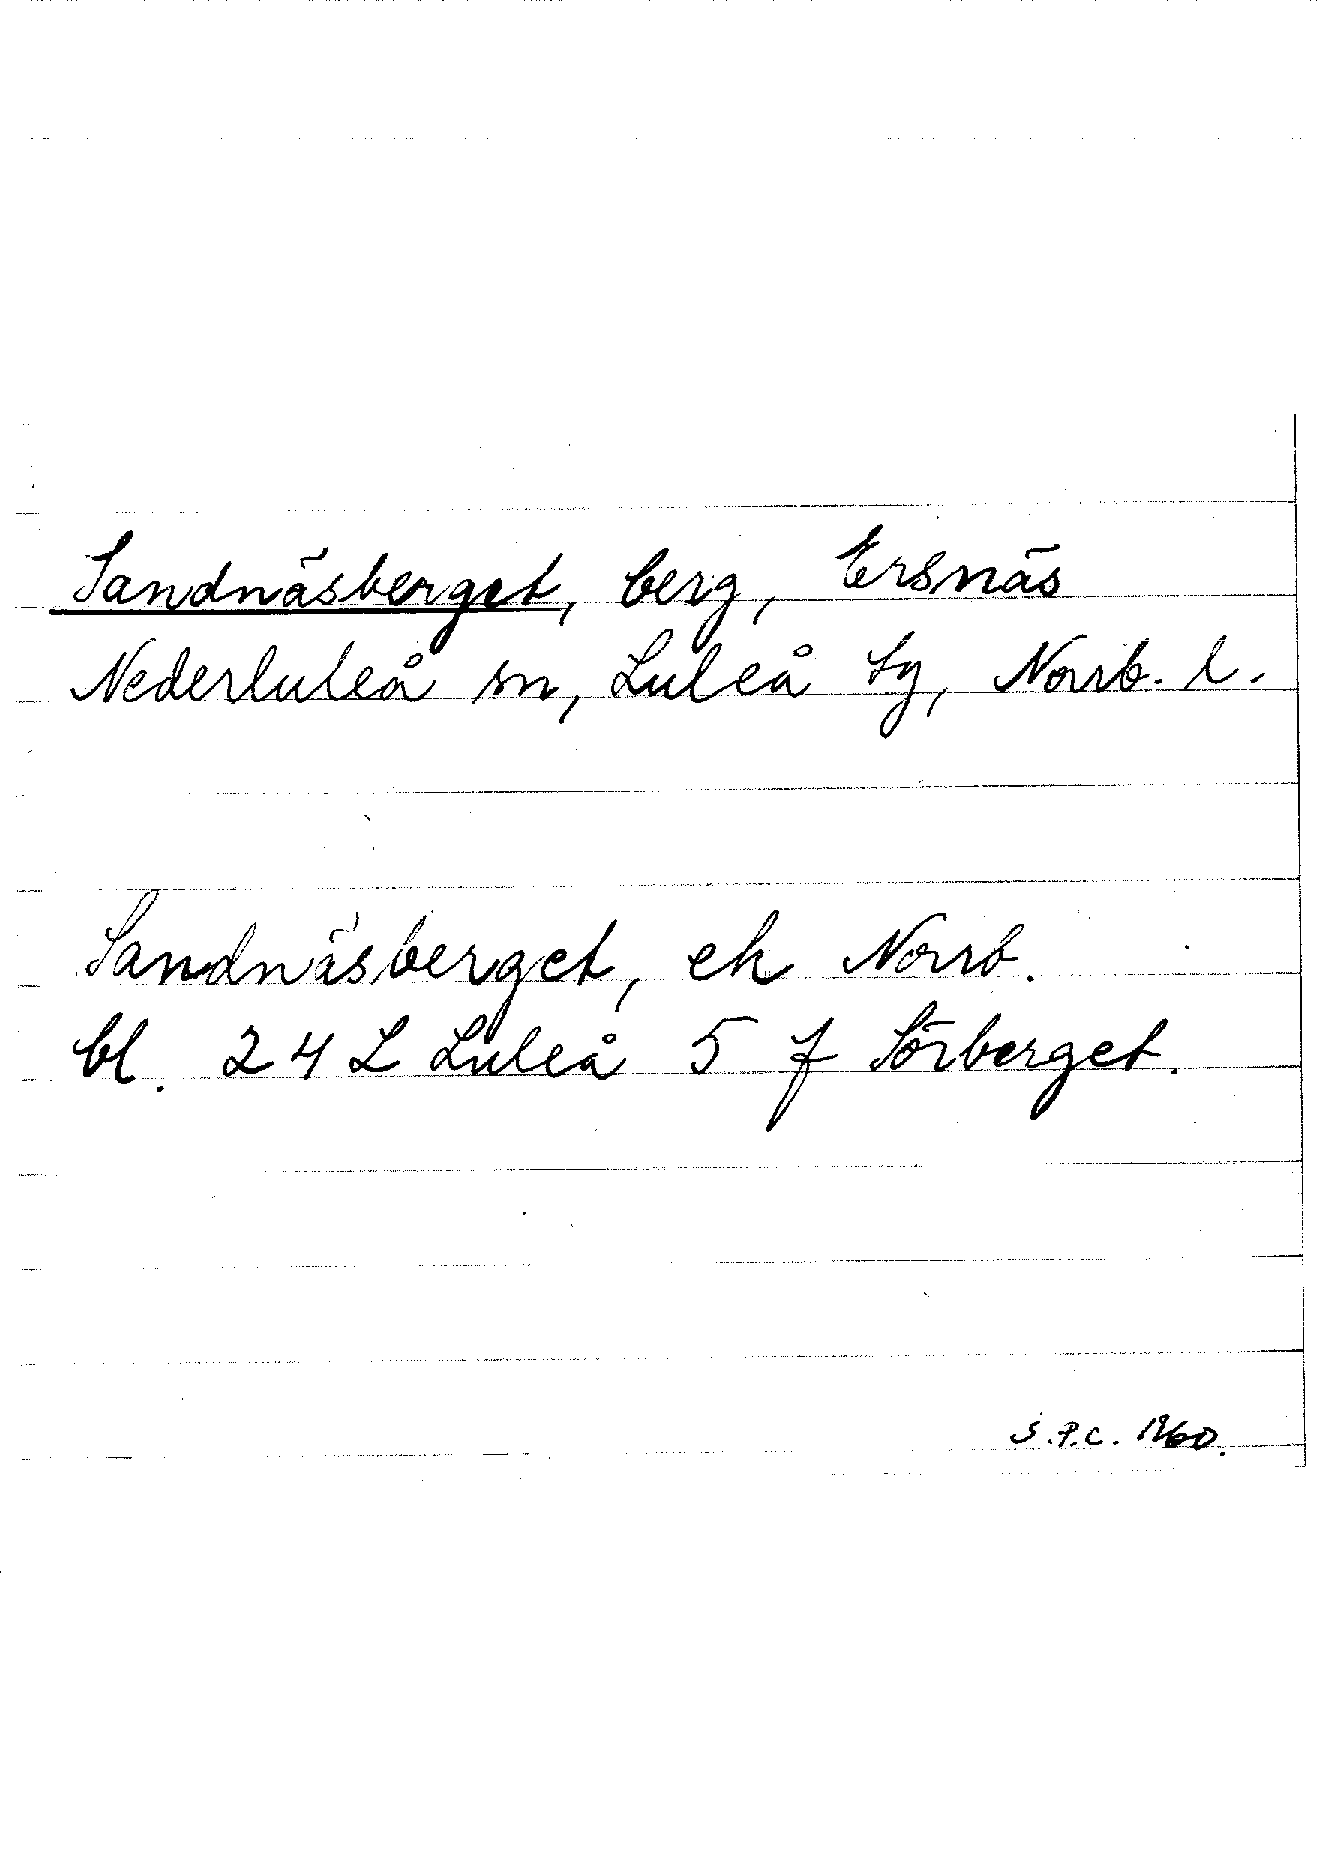 Sandnäsberget, berg, Ersnäs
Nederluleå sn, Luleå tg, Norrb. l.
Sandnäsberget, ek Norrb.
bl. 24 L Luleå 5 f Sörberget.
S.P.C. 1960.